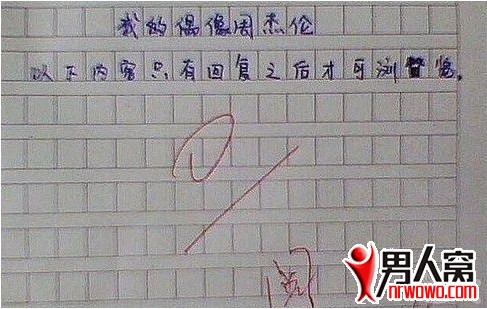 我的偶像周杰伦
以下内容只有回复之后才可浏览。
0
阅
男人窝
nrwowo.com